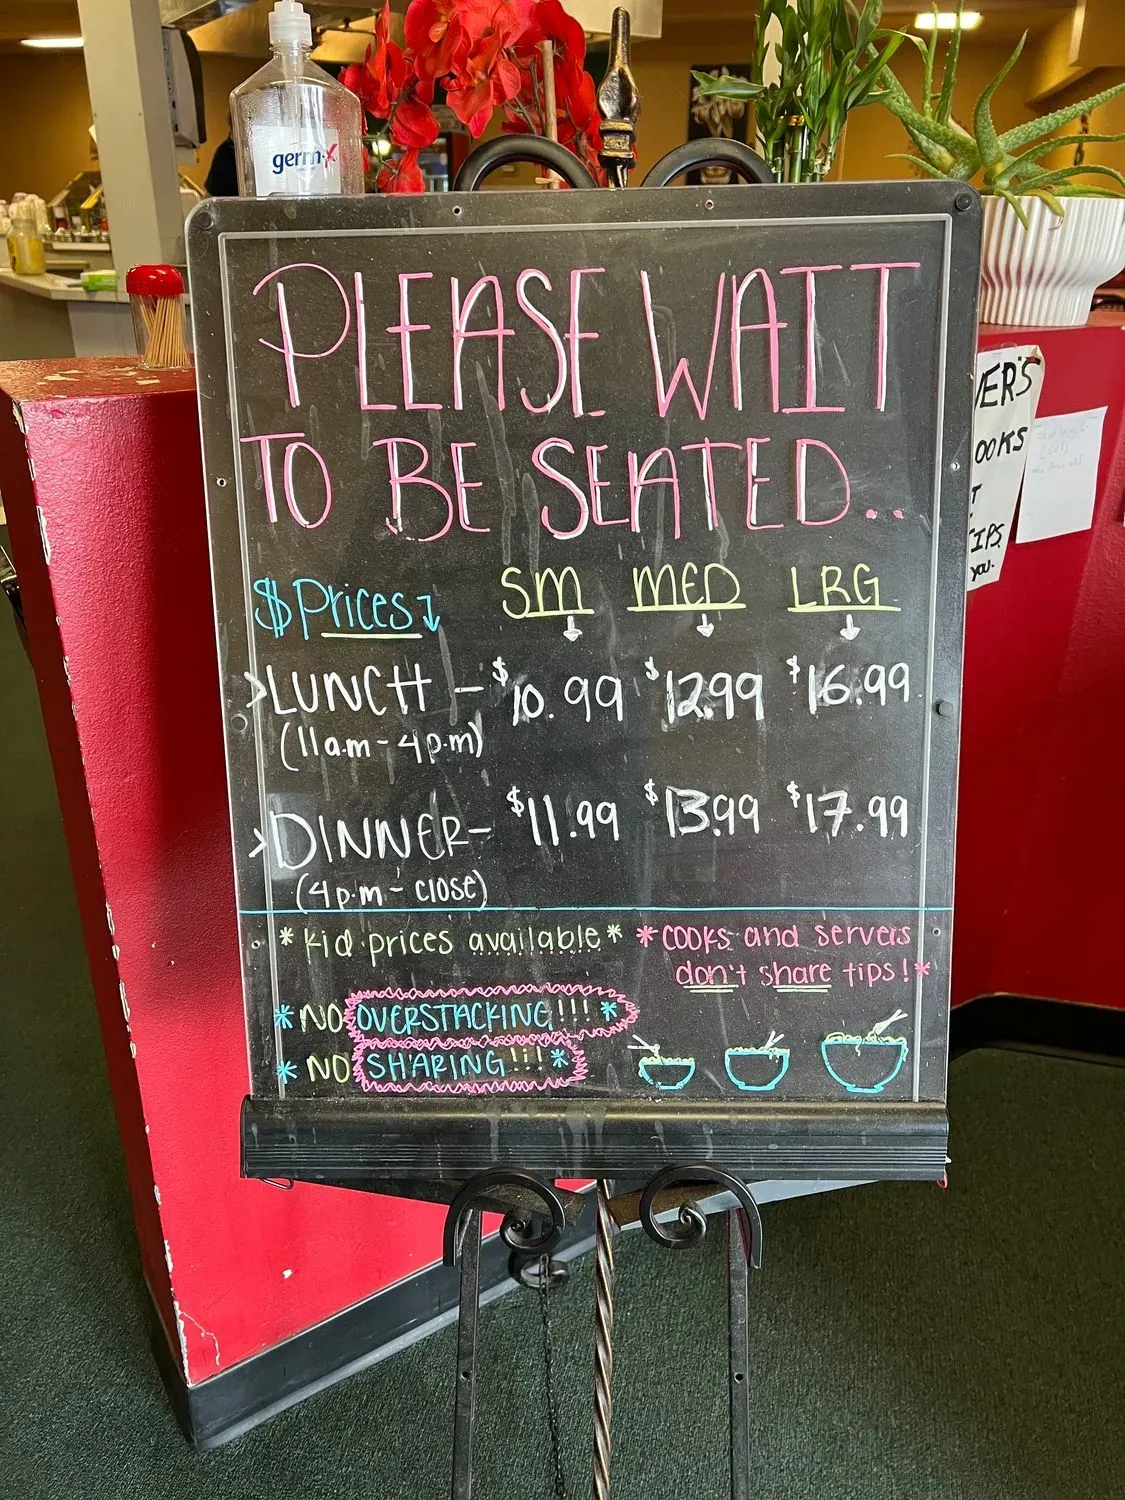 germ-x
PLEASE WAIT
TO BE SEATED..
$ Prices SM MED LRG
>LUNCH - $10.99 $12.99 $16.99
(11a.m - 4p.m)
>DINNER- $11.99 $13.99 $17.99
(4p.m - close)
*kid prices available*
*cooks and servers
don't share tips!*
*NO OVERSTACKING!!!*
*NO SHARING!!!*
VER'S
OOKS
T
TIPS
you.